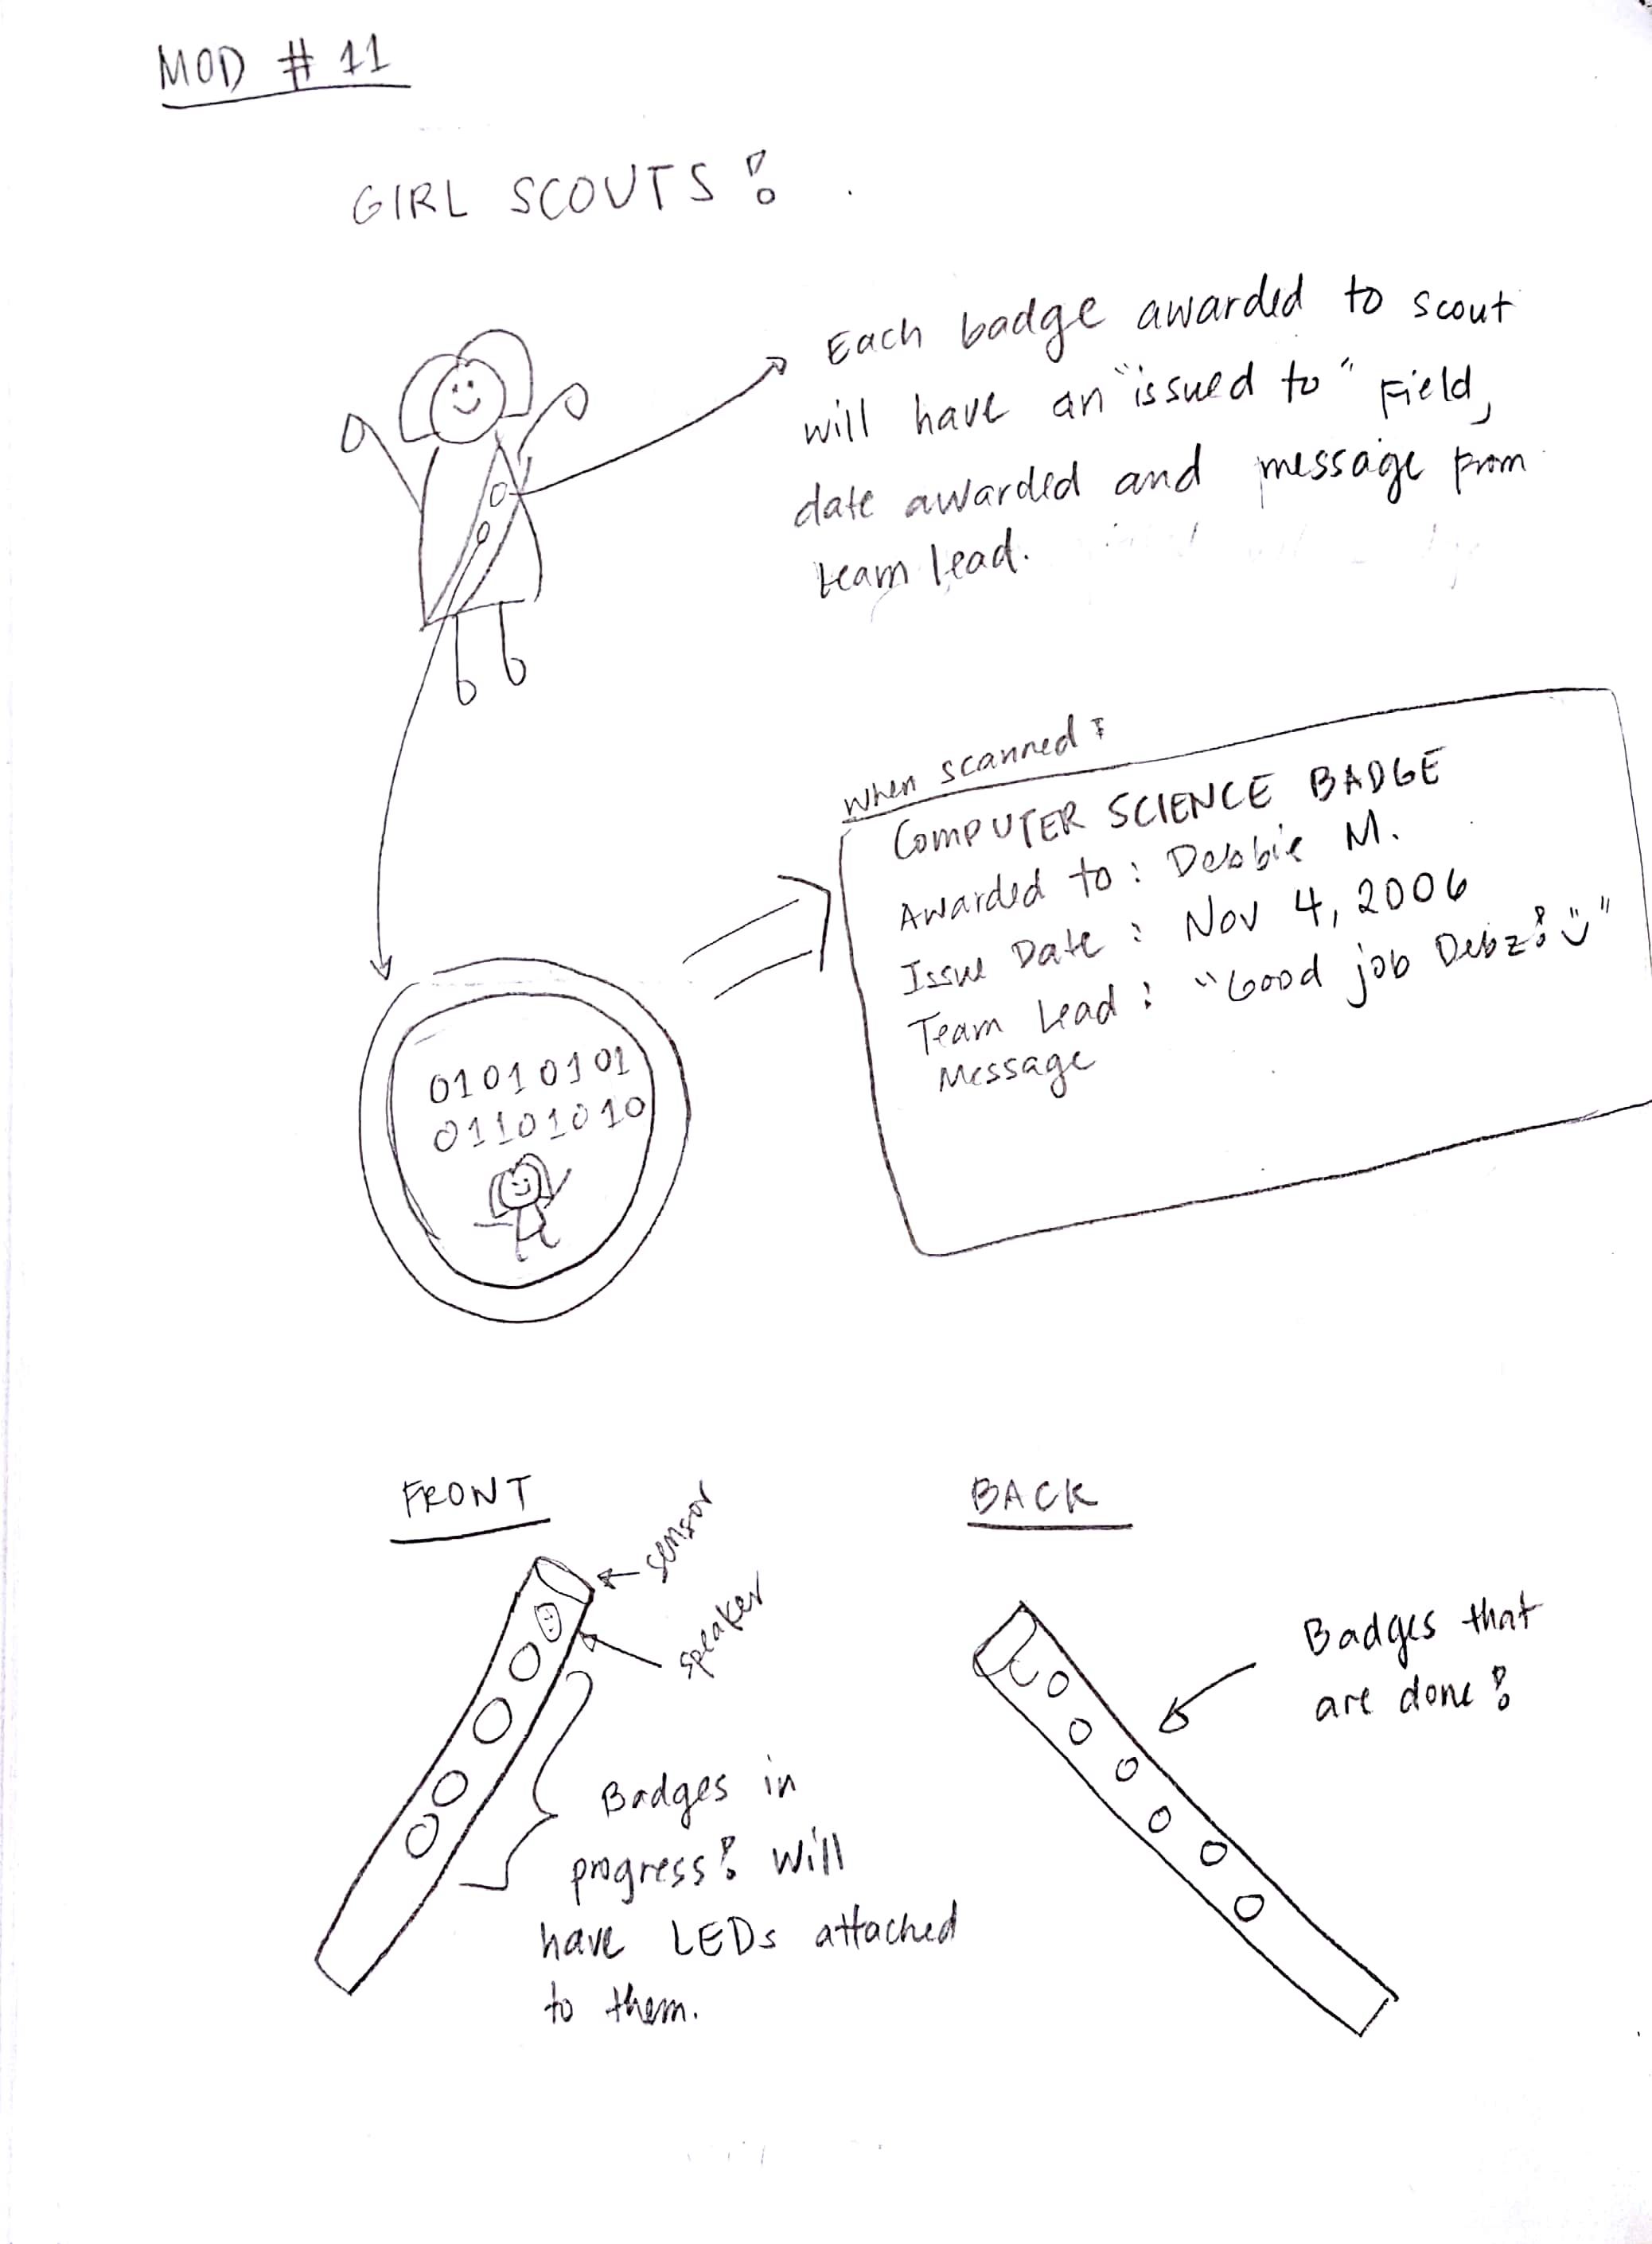 MOD # 11
GIRL SCOUTS!
Each badge awarded to scout
will have an "issued to" Field,
date awarded and message from
team lead.
When scanned:
COMPUTER SCIENCE BADGE
Awarded to: Debbie M.
Issue Date: Nov 4, 2006
Team Lead: "Good job Debz! :)"
Message
01010101
01101010
FRONT
sensor
speaker
Badges in
progress! Will
have LEDs attached
to them.
BACK
Badges that
are done!